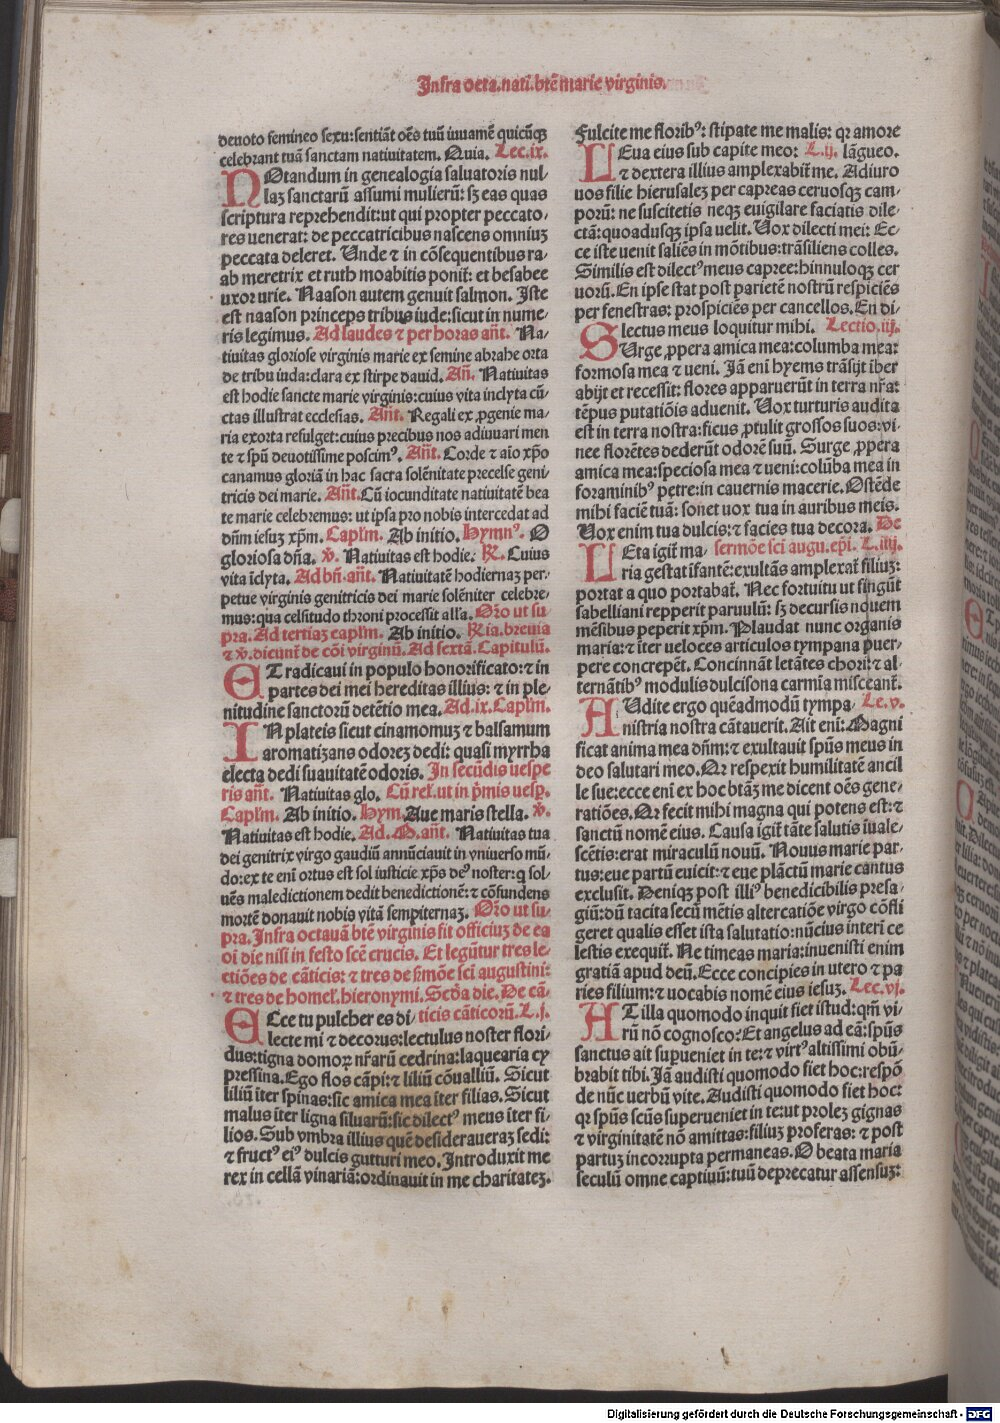 Infra octa.nati.btē marie virginis.
deuoto femineo sexu:sentiāt oēs tuū iuuamē quicūqꝫ
celebrant tuā sanctam natiuitatem. Quia. Lec.ix.
NOtandum in genealogia saluatoris nul-
laꝫ sanctarū assumi mulierū: sꝫ eas quas
scriptura reprehendit:ut qui propter peccato-
res uenerat: de peccatricibus nascens omniuꝫ
peccata deleret. Unde ⁊ in cōsequentibus ra-
ab meretrix et ruth moabitis poniť: et besabee
uxor urie. Naason autem genuit salmon. Iste
est naason princeps tribus iude:sicut in nume-
ris legimus. Ad laudes ⁊ per horas añt. Na-
tiuitas gloriose virginis marie ex semine abrahe orta
de tribu iuda:clara ex stirpe dauid. Añ. Natiuitas
est hodie sancte marie virginis:cuius vita inclyta cū-
ctas illustrat ecclesias. Añt. Regali ex ꝓgenie ma-
ria exorta refulget:cuius precibus nos adiuuari men
te ⁊ spū deuotissime poscimꝰ. Añt. Corde ⁊ aīo xp̄o
canamus gloriā in hac sacra solēnitate precelse geni-
tricis dei marie. Añt. Cū iocunditate natiuitatē bea
te marie celebremus: ut ipsa pro nobis intercedat ad
dn̄m iesuꝫ xp̄m. Capľm. Ab initio. Hymnꝰ. O
gloriosa dn̄a. ℣. Natiuitas est hodie. ℟. Cuius
vita īclyta. Ad bn̄. añt. Natiuitatē hodiernaꝫ per-
petue virginis genitricis dei marie solēniter celebre-
mus:qua celsitudo throni processit alľa. Or̄o ut su
pra. Ad tertiaꝫ capľm. Ab initio. ℟ia. breuia
⁊ ℣. dicunť de cōi virginū. Ad sextā. Capitulū.
ET radicaui in populo honorificato:⁊ in
partes dei mei hereditas illius: ⁊ in ple-
nitudine sanctorū detētio mea. Ad. ix. Capľm.
IN plateis sicut cinamomuꝫ ⁊ balsamum
aromatizans odoreꝫ dedi: quasi myrrha
electa dedi suauitatē odoris. In secūdis uespe
ris añt. Natiuitas glo. Cū rel̄. ut in p̄mis uesꝑ.
Capľm. Ab initio. Hym. Aue maris stella. ℣.
Natiuitas est hodie. Ad. M. añt. Natiuitas tua
dei genitrix virgo gaudiū annūciauit in vniuerso mū-
do:ex te enī ortus est sol iusticie xp̄s deꝰ noster:q sol-
uēs maledictionem dedit benedictionē: ⁊ cōfundens
mortē donauit nobis vitā sempiternaꝫ. Or̄o ut su-
pra. Infra octauā btē virginis fit officiuꝫ de ea
oi die nisi in festo scē crucis. Et legūtur tres le-
ctiōes de cāticis: ⁊ tres de s̄mōe sci augustini:
⁊ tres de homeľ. hieronymi. Scd̄a die. De cā-
ECce tu pulcher es di- ticis cāticorū. L. j.
lecte mi ⁊ decorus:lectulus noster flori-
dus:tigna domoꝝ nr̄arū cedrina:laquearia cy
pressina. Ego flos cāpi:⁊ liliū cōualliū. Sicut
liliū īter spinas:sic amica mea īter filias. Sicut
malus īter ligna siluarū:sic dilectꝰ meus īter fi-
lios. Sub vmbra illius quē desideraueraꝫ sedi:
⁊ fructꝰ eiꝰ dulcis gutturi meo. Introduxit me
rex in cellā vinariā:ordinauit in me charitateꝫ.
Fulcite me floribꝰ: stipate me malis: qꝛ amore
LEua eius sub capite meo: L.ij. lāgueo.
⁊ dextera illius amplexabiť me. Adiuro
uos filie hierusaleꝫ per capreas ceruosqꝫ cam-
porū: ne suscitetis neqꝫ euigilare faciatis dile-
ctā: quoadusqꝫ ipsa uelit. Uox dilecti mei: Ec-
ce iste uenit saliēs in mōtibus:trāsiliens colles.
Similis est dilectꝰ meus capree:hinnuloqꝫ cer
uorū. En ipse stat post parietē nostrū respiciēs
per fenestras: prospiciēs per cancellos. En di-
lectus meus loquitur mihi. Lectio.iij.
SUrge ꝓpera amica mea:columba mea:
formosa mea ⁊ ueni. Iā enī hyems trāsijt īber
abijt et recessit: flores apparuerūt in terra nr̄a:
tēpus putatiōis aduenit. Uox turturis audita
est in terra nostra:ficus ꝓtulit grossos suos:vi-
nee florētes dederūt odorē suū. Surge ꝓpera
amica mea:speciosa mea ⁊ ueni:colūba mea in
foraminibꝰ petre:in cauernis macerie. Ostēde
mihi faciē tuā: sonet uox tua in auribus meis.
Uox enim tua dulcis:⁊ facies tua decora. De
LEta igiť ma- sermōe sci augu. ep̄i. L.iiij.
ria gestat īfantē:exultās amplexať filiuꝫ:
portat a quo portabať. Nec fortuitu ut fingūt
sabelliani repperit paruulū: sꝫ decursis nouem
mēsibus peperit xp̄m. Plaudat nunc organis
maria:⁊ īter veloces articulos tympana puer-
pere concrepēt. Concinnāt letātes chori:⁊ al-
ternātibꝰ modulis dulcisona carmīa misceanť.
AUdite ergo quēadmodū tympa- Le.v.
nistria nostra cātauerit. Ait enī: Magni
ficat anima mea dn̄m: ⁊ exultauit sp̄us meus in
deo salutari meo. Qꝛ respexit humilitatē ancil
le sue:ecce enī ex hoc btāꝫ me dicent oēs gene-
ratiōes. Qꝛ fecit mihi magna qui potens est:⁊
sanctū nomē eius. Causa igiť tāte salutis īuale-
scētis:erat miraculū nouū. Nouus marie par-
tus:eue partū euicit:⁊ eue plāctū marie cantus
exclusit. Deniqꝫ post illiꝰ benedicibilis presa-
giū:dū tacita secū mētis altercatiōe virgo cōfli
geret qualis esset ista salutatio:nūcius interī ce
lestis exequiť. Ne timeas maria:inuenisti enim
gratiā apud deū. Ecce concipies in utero ⁊ pa
ries filium:⁊ uocabis nomē eius iesuꝫ. Lec.vj.
AT illa quomodo inquit fiet istud:qm̄ vi-
rū nō cognosco: Et angelus ad eā:sp̄us
sanctus ait supueniet in te:⁊ virtꝰ altissimi obū-
brabit tibi. Iā audisti quomodo fiet hoc:respō
de nūc uerbū vite. Audisti quomodo fiet hoc:
qꝛ sp̄us scūs superueniet in te:ut proleꝫ gignas
⁊ virginitatē nō amittas:filiuꝫ proferas: ⁊ post
partuꝫ incorrupta permaneas. O beata maria
seculū omne captiuū:tuū deprecatur assensuꝫ:
Digitalisierung gefördert durch die Deutsche Forschungsgemeinschaft - DFG